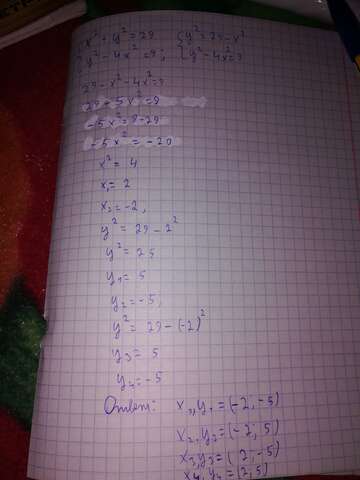 {x² + y² = 29 {y² = 29 - x²
{y² - 4x² = 9; {y² - 4x² = 9
29 - x² - 4x² = 9
29 - 5x² = 9
-5x² = 9 - 29
-5x² = -20
x² = 4
x₁ = 2
x₂ = -2,
y² = 29 - 2²
y² = 25
y₁ = 5
y₂ = -5,
y² = 29 - (-2)²
y₃ = 5
y₄ = -5
Ответ: x₁,y₁ = (-2; -5)
x₂,y₂ = (-2; 5)
x₃,y₃ = (2; -5)
x₄,y₄ = (2; 5)